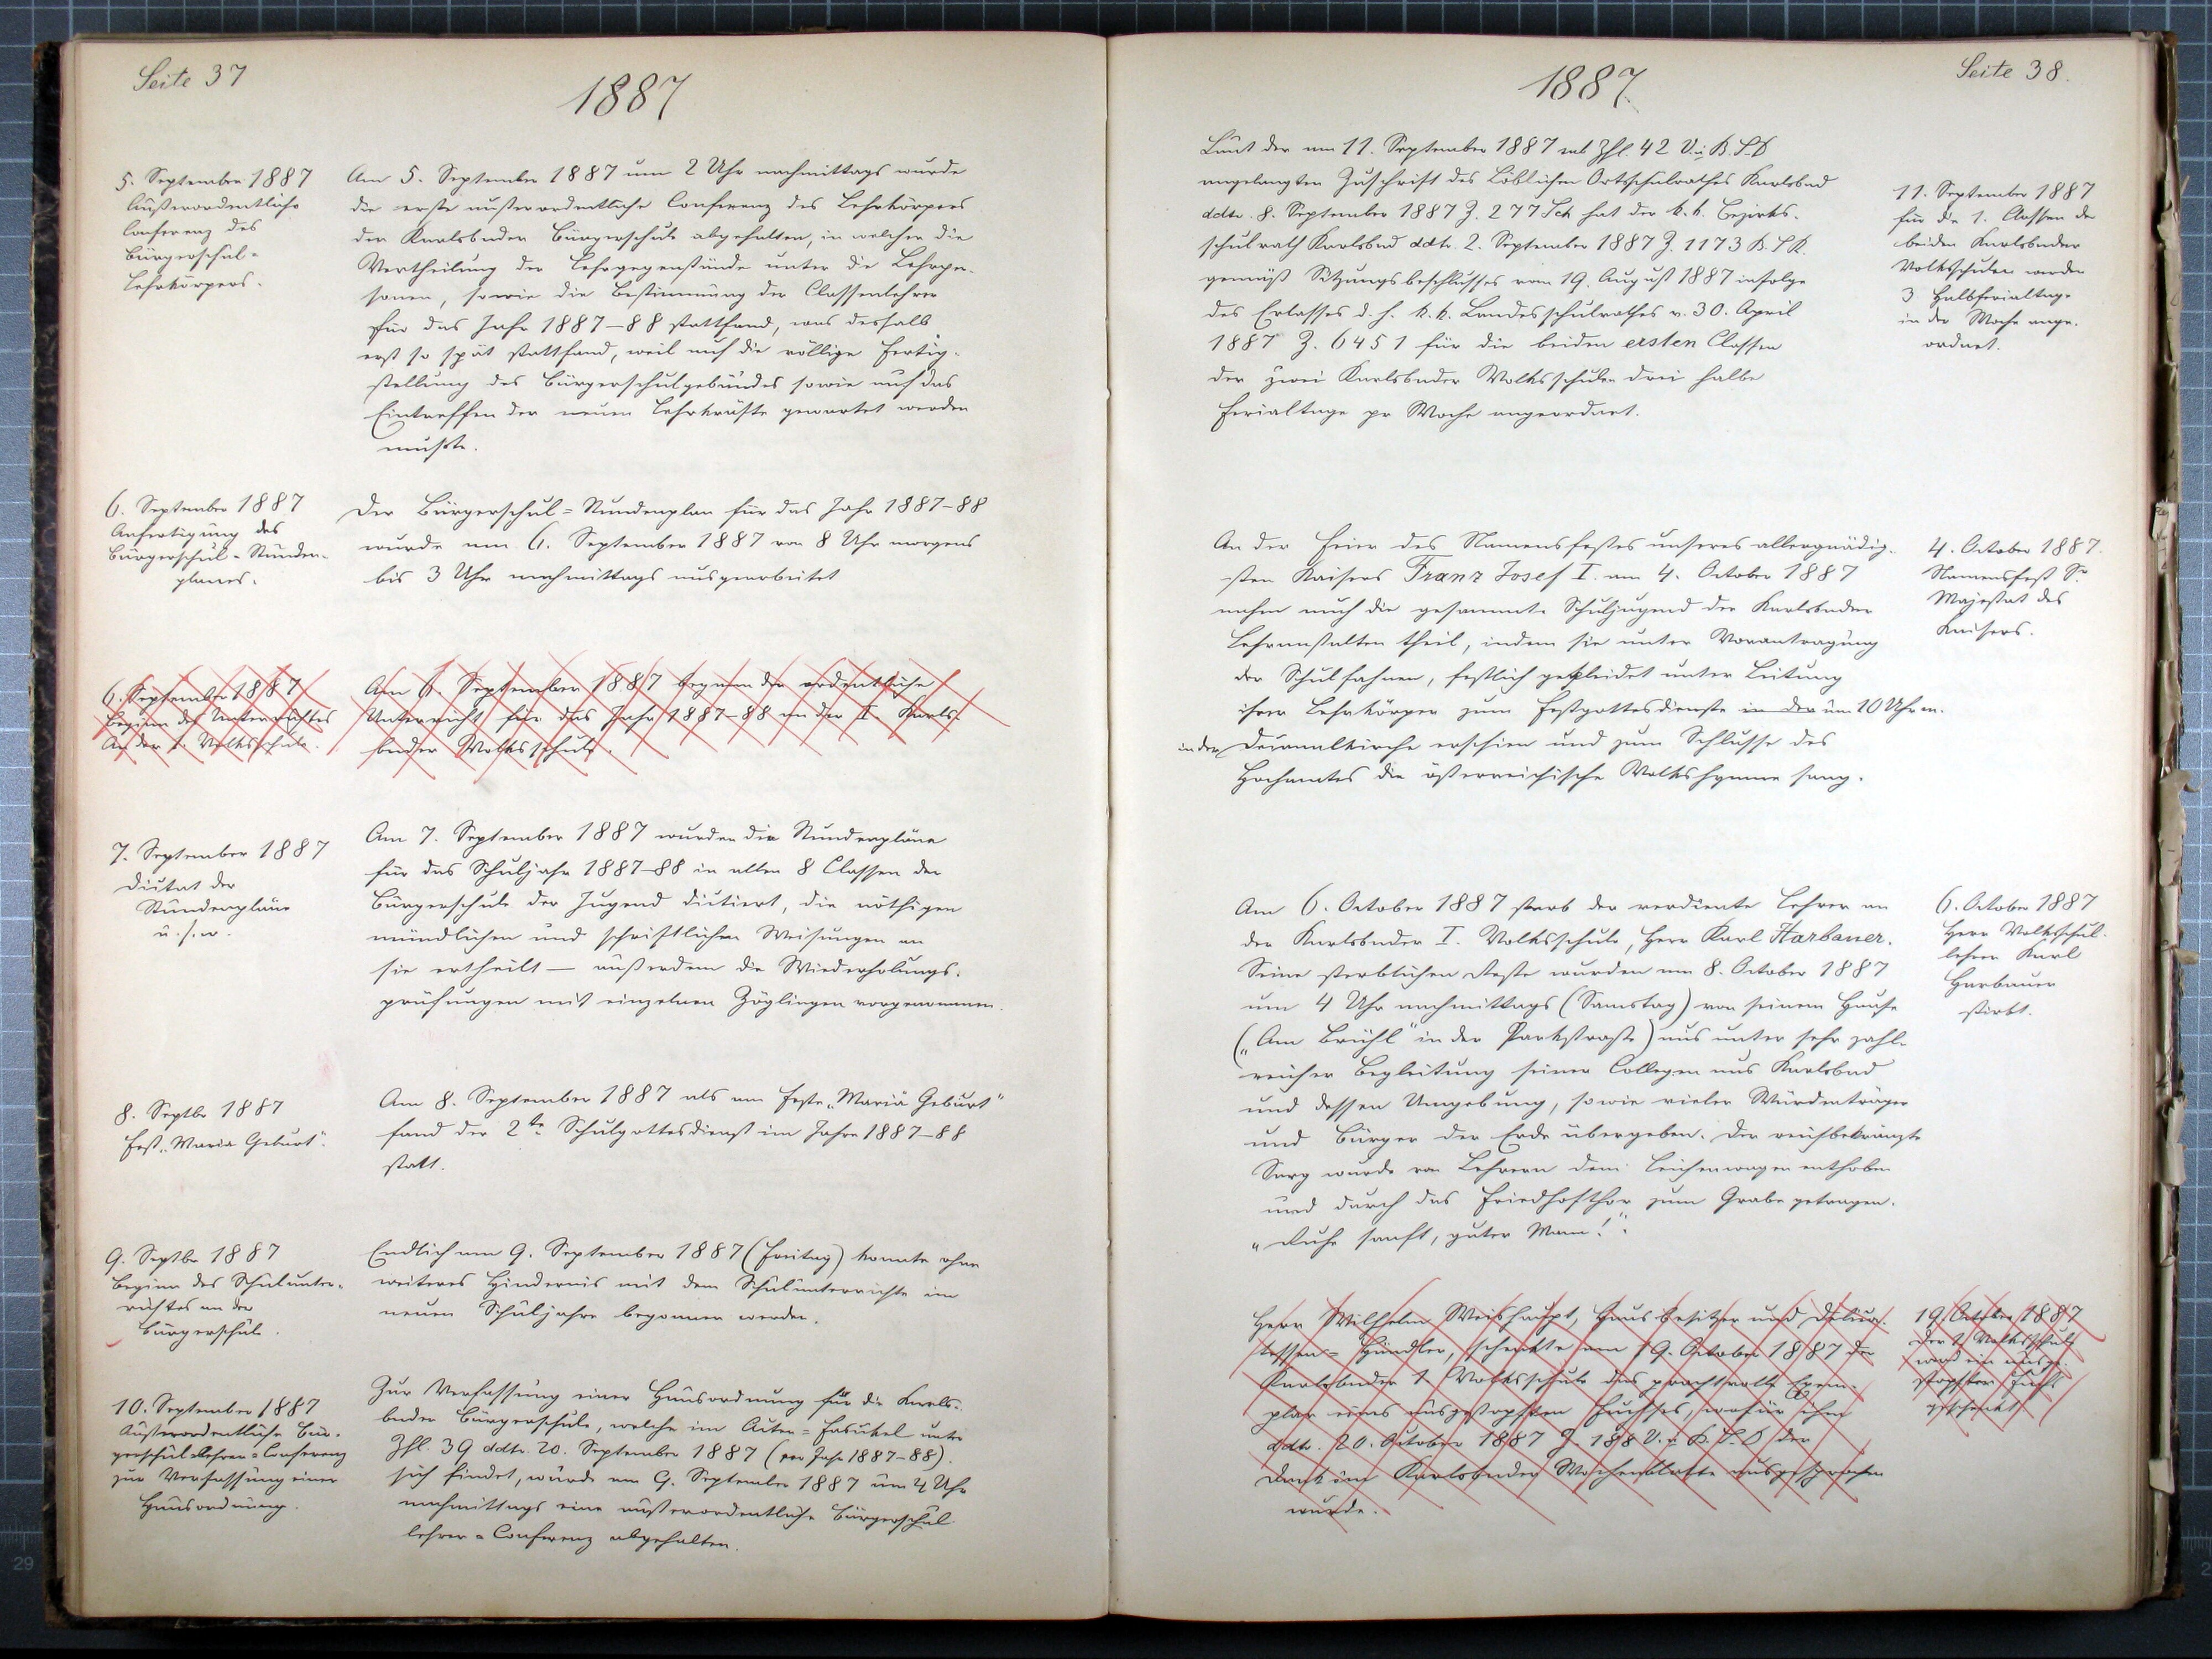 Seite 37
1887
5. September 1887
Außerordentliche
Conferenz des
Bürgerschul-
Lehrkörpers.
Am 5. September 1887 um 2 Uhr nachmittags wurde
die erste außerordentliche Conferenz des Lehrkörpers
der Karlsbader Bürgerschule abgehalten, in welcher die
Vertheilung der Lehrgegenstände unter die Lehrper-
sonen, sowie die Bestimmung der Classenlehrer
für das Jahr 1887–88 stattfand, was deshalb
erst so spät stattfand, weil auf die völlige Fertig-
stellung des Bürgerschulgebäudes sowie auf das
Eintreffen der neuen Lehrkräfte gewartet werden
mußte.
6. September 1887
Anfertigung des
Bürgerschul-Stunden-
planes.
Der Bürgerschul=Stundenplan für das Jahr 1887–88
wurde am 6. September 1887 von 8 Uhr morgens
bis 3 Uhr nachmittags ausgearbeitet
6. September 1887
Beginn des Unterrichtes
An der I. Volksschule.
Am 6. September 1887 begann der ordentliche
Unterricht für das Jahr 1887–88 an der I. Karls-
bader Volksschule.
7. September 1887
Dictat der
Stundenpläne
u.s.w.
Am 7. September 1887 wurden die Stundenpläne
für das Schuljahr 1887–88 in allen 8 Classen der
Bürgerschule der Jugend dictiert, die nöthigen
mündlichen und schriftlichen Weisungen an
sie ertheilt — außerdem die Wiederholungs-
prüfungen mit einzelnen Zöglingen vorgenommen.
8. Septbr 1887
Fest „Maria Geburt".
Am 8. September 1887 als am Feste „Mariä Geburt"
fand der 2te Schulgottesdienst im Jahre 1887–88
statt.
9. Septbr 1887
Beginn des Schulunter-
richtes an der
Bürgerschule.
Endlich am 9. September 1887 (Freitag) konnte ohne
weiteres Hindernis mit dem Schulunterrichte im
neuen Schuljahre begonnen werden.
10. September 1887
Außerordentliche Bür-
gerschullehrer=Conferenz
zur Verfassung einer
Hausordnung.
Zur Verfassung einer Hausordnung für die Karls-
bader Bürgerschule, welche im Acten=Fasцikel unter
Zhl. 39 ddto. 20. September 1887 (pro Jahr 1887–88)
sich findet, wurde am 9. September 1887 um 4 Uhr
nachmittags eine außerordentliche Bürgerschul-
lehrer=Conferenz abgehalten.
1887
Seite 38.
Laut der am 11. September 1887 sub Zhl. 42 V. u. B. S. D
angelangten Zuschrift des Löblichen Ortsschulrathes Karlsbad
ddto. 8. September 1887 Z. 277 Sch hat der k. k. Bezirks-
schulrath Karlsbad ddto. 2. September 1887 Z. 1173 B. S. R.
gemäß Sitzungsbeschlusses vom 19. August 1887 infolge
des Erlasses d. h. k. k. Landesschulrathes v. 30. April
1887 Z. 6451 für die beiden ersten Classen
der zwei Karlsbader Volksschulen drei halbe
Ferialtage pr Woche angeordnet.
11. September 1887
für die 1. Classen der
beiden Karlsbader
Volksschulen werden
3 Halbferialtage
in der Woche ange-
ordnet.
An der Feier des Namensfestes unseres allergnädig-
sten Kaisers Franz Josef I. am 4. October 1887
nahm auch die gesammte Schuljugend der Karlsbader
Lehranstalten theil, indem sie unter Vorantragung
der Schulfahnen, festlich gekleidet unter Leitung
ihrer Lehrkörper zum Festgottesdienste in der um 10 Uhr m.
in der Decanalkirche erschien und zum Schlusse des
Hochamtes die österreichische Volkshymne sang.
4. October 1887.
Namensfest Sr.
Majestät des
Kaisers.
Am 6. October 1887 starb der verdiente Lehrer an
der Karlsbader I. Volksschule, Herr Karl Harbauer.
Seine sterblichen Reste wurden am 8. October 1887
um 4 Uhr nachmittags (Samstag) von seinem Hause
(„Am Brühl" in der Parkstraße) aus unter sehr zahl-
reicher Begleitung seiner Collegen aus Karlsbad
und dessen Umgebung, sowie vieler Würdenträger
und Bürger der Erde übergeben. Der reichbekränzte
Sarg wurde von Lehrern dem Leichenwagen enthoben
und durch das Friedhofthor zum Grabe getragen.
„Ruhe sanft, guter Mann!".
6. October 1887
Herr Volksschul-
lehrer Karl
Harbauer
stirbt.
Herr Wilhelm Weishaupt, Hausbesitzer und Delica-
tessen=Händler, schenkte am 19. October 1887 der
Karlsbader I. Volksschule das prachtvolle Exem-
plar eines ausgestopften Fuchses, wofür ihm
ddto. 20. October 1887 Z. 188 V. u. B. S. D der
Dank im Karlsbader Wochenblatte ausgesprochen
wurde.
19. October 1887
Der I. Volksschule
wird ein ausge-
stopfter Fuchs
geschenkt